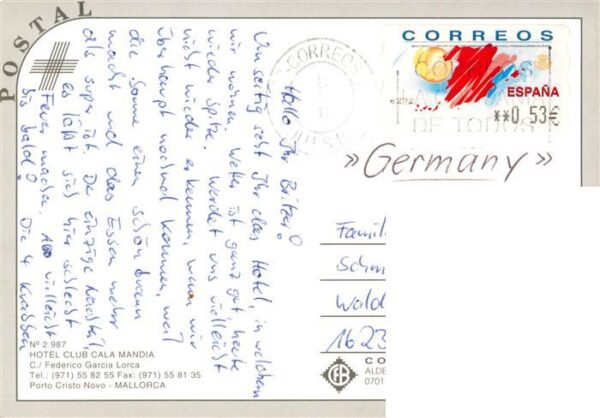 POSTAL
Hallo Ihr Briten!
Umseitig seht Ihr das Hotel, in welchem
wir wohnen. Wetter ist ganz gut, heute
wieder spitze. Werdet uns vielleicht
nicht wieder erkennen, wenn wir
überhaupt nochmal kommen, weil
die Sonne einen schön braun
macht und das Essen mehr
als super ist. Der einzige Nachteil,
es läßt sich hier schlecht
Feuer machen. Also vielleicht
bis bald!
Die 4
Nº 2.987
HOTEL CLUB CALA MANDIA
C./ Federico Garcia Lorca
Tel.: (971) 55 82 55 Fax: (971) 55 81 35
Porto Cristo Novo - MALLORCA
CORREOS
CORREOS
ESPAÑA
**0,53€
DE TODOS
»Germany»
Famil
Schm
Wald
1623
CO
ALDE
0701